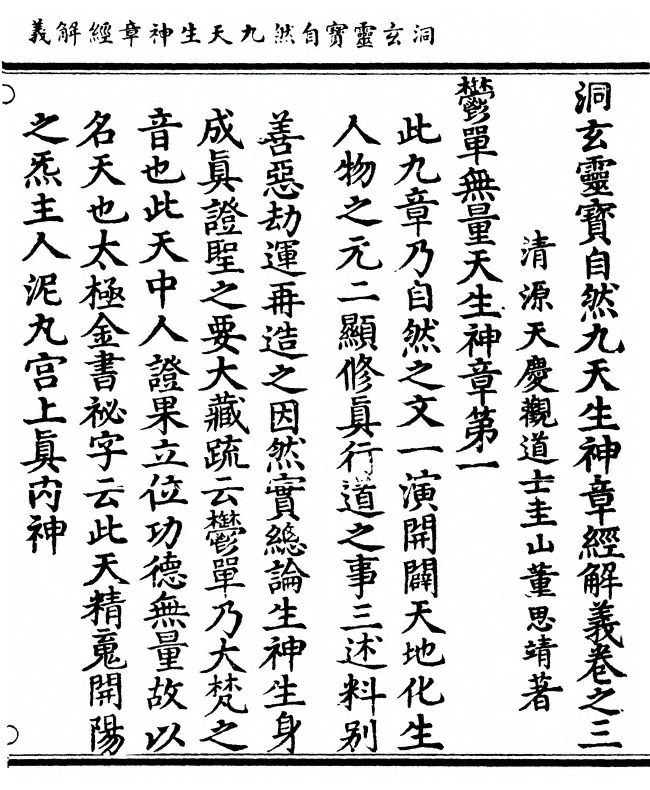 洞玄靈寳自然九天生神章經解義
洞玄靈寳自然九天生神章經解義卷之三
清源天慶觀道士圭山董思靖著
鬱單無量天生神章第一
此九章乃自然之文一演開闢天地化生
人物之元二顯修眞行道之事三述料别
善惡劫運再造之因然實總論生神生身
成眞證聖之要大藏疏云鬱單乃大梵之
音也此天中人證果立位功德無量故以
名天也太極金書祕字云此天精䰟開陽
之炁主人泥丸宫上眞内神